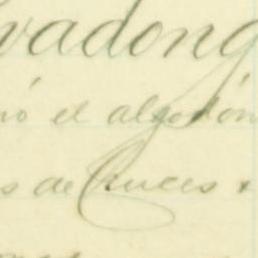 vadong
ó el algodón
s de Cruces